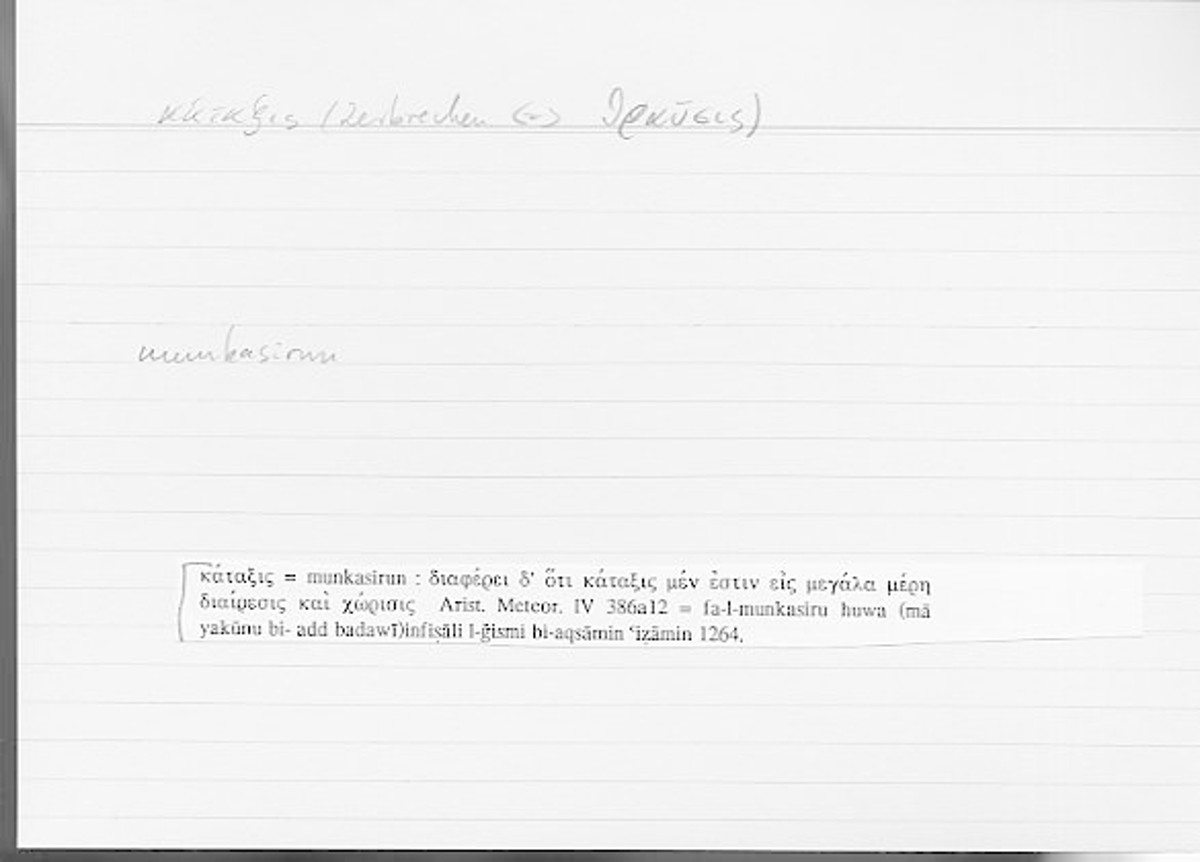 κάταξις (zerbrechen <-> θραῦσις)
munkasirun
κάταξις = munkasirun : διαφέρει δ' ὅτι κάταξις μέν ἐστιν εἰς μεγάλα μέρη
διαίρεσις καὶ χώρισις Arist. Meteor. IV 386a12 = fa-l-munkasiru huwa (mā
yakūnu bi- add badawī)infiṣāli l-ǧismi bi-aqsāmin ʿiẓāmin 1264,